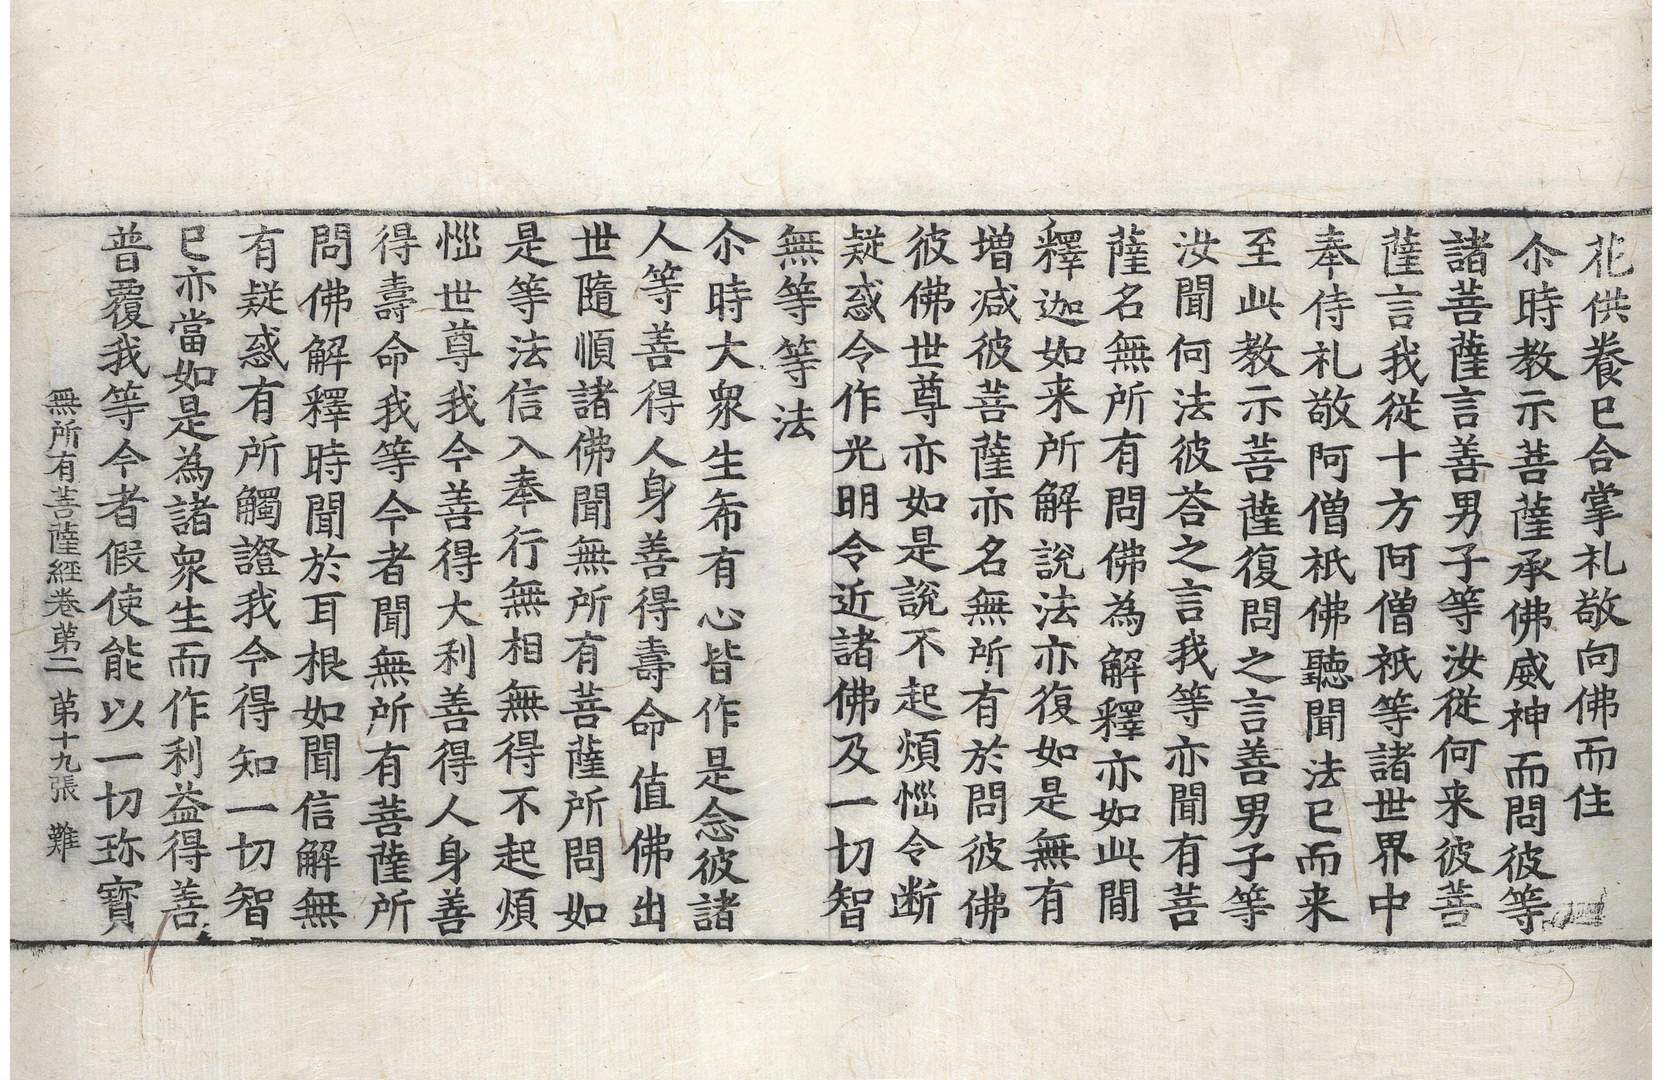 花供養已合掌礼敬向佛而住
尒時教示菩薩承佛威神而問彼等
諸菩薩言善男子等汝從何来彼菩
薩言我從十方阿僧祇等諸世界中
奉侍礼敬阿僧祇佛聽聞法已而来
至此教示菩薩復問之言善男子等
汝聞何法彼荅之言我等亦聞有菩
薩名無所有問佛為解釋亦如此間
釋迦如来所解說法亦復如是無有
增减彼菩薩亦名無所有於問彼佛
彼佛世尊亦如是說不起煩惱令断
疑惑令作光明令近諸佛及一切智
無等等法
尒時大衆生希有心皆作是念彼諸
人等善得人身善得壽命值佛出
世隨順諸佛聞無所有菩薩所問如
是等法信入奉行無相無得不起煩
惱世尊我今善得大利善得人身善
得壽命我等今者聞無所有菩薩所
問佛解釋時聞於耳根如聞信解無
有疑惑有所觸證我今得知一切智
已亦當如是為諸衆生而作利益得善
普覆我等今者假使能以一切珎寳
無所有菩薩經卷第二 第十九張 難